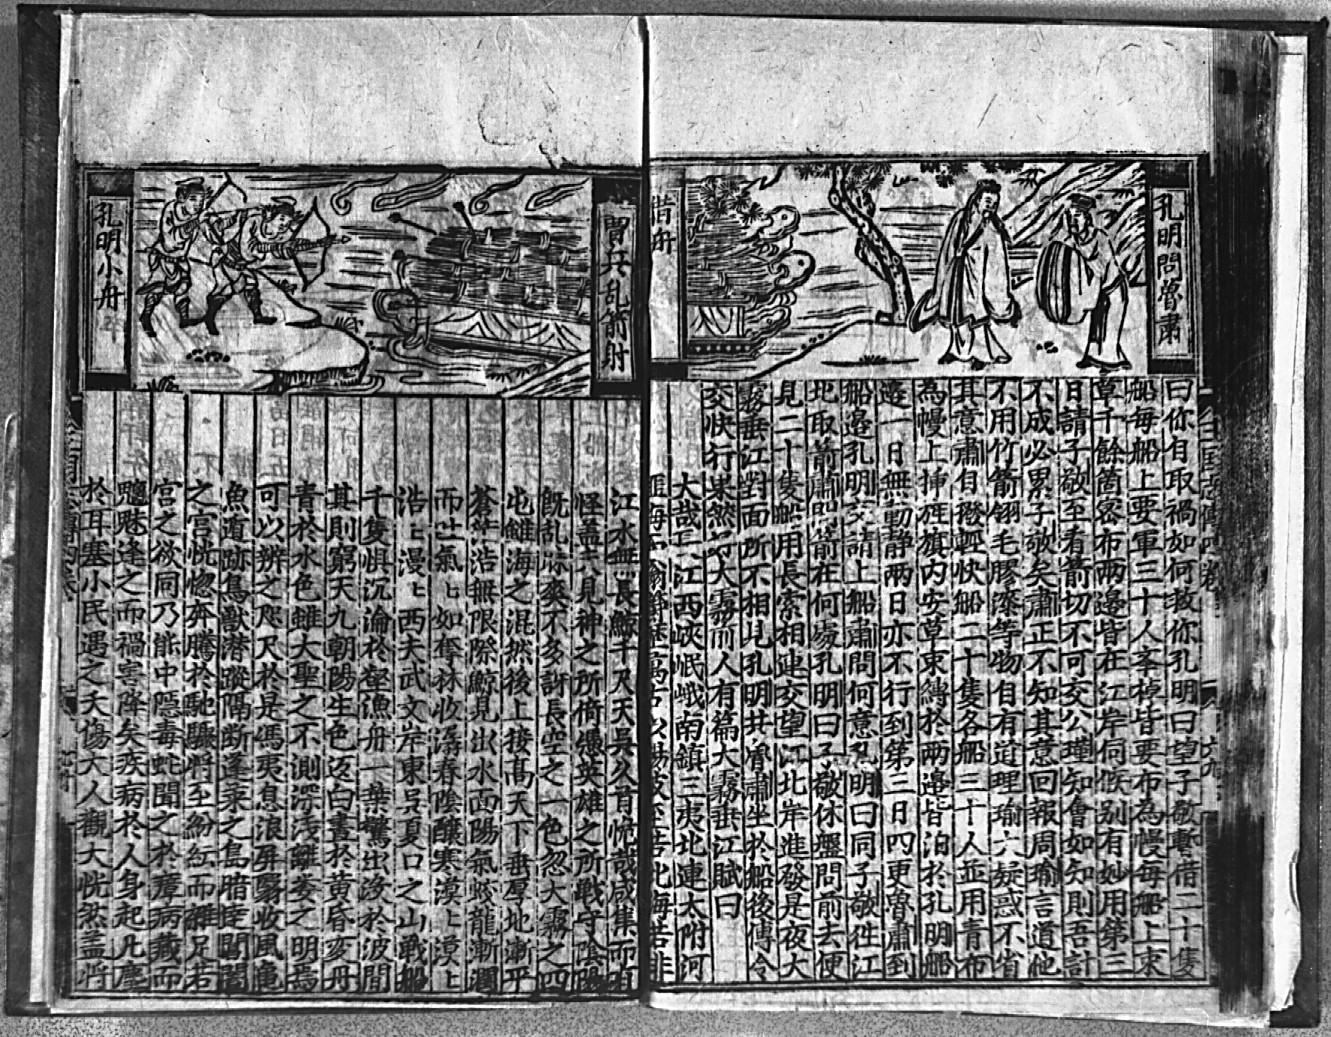 孔明問魯肅
借舟
曰你自取禍如何救你孔明曰望子敬暫借二十隻
船每船上要軍三十人宰棹皆要布為幔每船上束
草千餘箇密布兩邊皆在江岸伺候别有妙用第三
日請子敬至看箭切不可交公瑾知會如知則吾計
不成必累子敬矣肅正不知其意回報周瑜言道他
不用竹箭翎毛膠漆等物自有道理瑜六疑惑不省
其意肅自撥輕快船二十隻各船三十人並用青布
為幔上揷旌旗内安草束縛於兩邉皆泊於孔明船
邉一日無動静兩日亦不行到第三日四更魯肅到
船邉孔明交請上船肅問何意孔明曰同子敬徃江
北取箭肅曰箭在何處孔明曰子敬休盤問前去便
見二十隻船用長索相連交望江北岸進發是夜大
霧垂江對面所不相見孔明共魯肅坐於船後傳令
交快行果然好大霧前人有篇大霧垂江賦曰
大哉三江西峽岷峨南鎮三夷北連太附河
冑兵乱箭射
孔明小舟
江水無長鯨千尺天吳久首恍哉咸集而有
怪盖六見神之所倚憑英雄之所戰守陰陽
旣乱昧爽不多訝長空之一色忽大霧之四
屯雖海之混然後上接髙天下垂厚地漸平
蒼茫浩無限際鯨見出水面陽氣蛟龍漸澗
而亡氣上如奪林收潺春陰釀寒漠上漠上
浩上漫上西夫武文岸東吳夏口之山戰船
千隻惧沉淪於壑漁舟一葉驚出沒於波間
其則窮天九朝陽生色迈白晝於黄昏変丹
青於水色雖大聖之不測深浅離娄之明焉
可以辨之咫尺於是馮夷息浪屏翳收風亀
魚遁跡鳥獸潜蹤隔断蓬萊之島暗
之宫恍惚奔騰於馳驟將至紛紜而離足若
宫之欲同乃能中隱毒蛇聞之於瘴病藏而
魑魅逢之而禍害降矣疾病於人身起凡塵
於耳塞小民遇之夭傷大人觀大恍然盖將